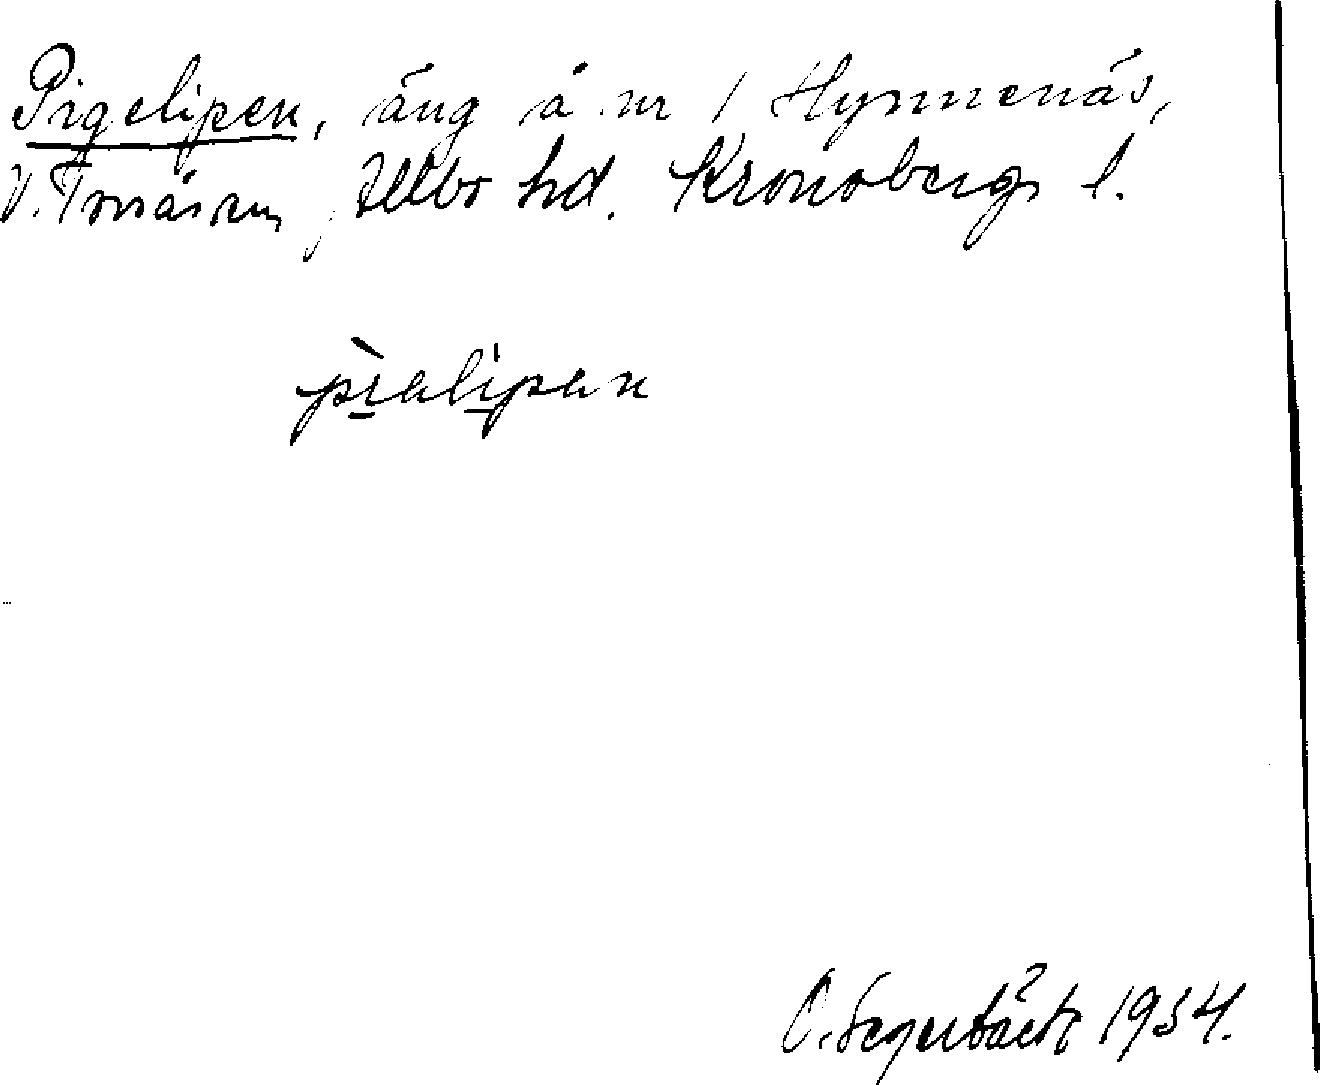 Pigelipen, äng å nr 1 Hynnenäs,
V. Torsås sn, Allbo hd. Kronobergs l.
pìalípan
C. Segerbäck 1934.